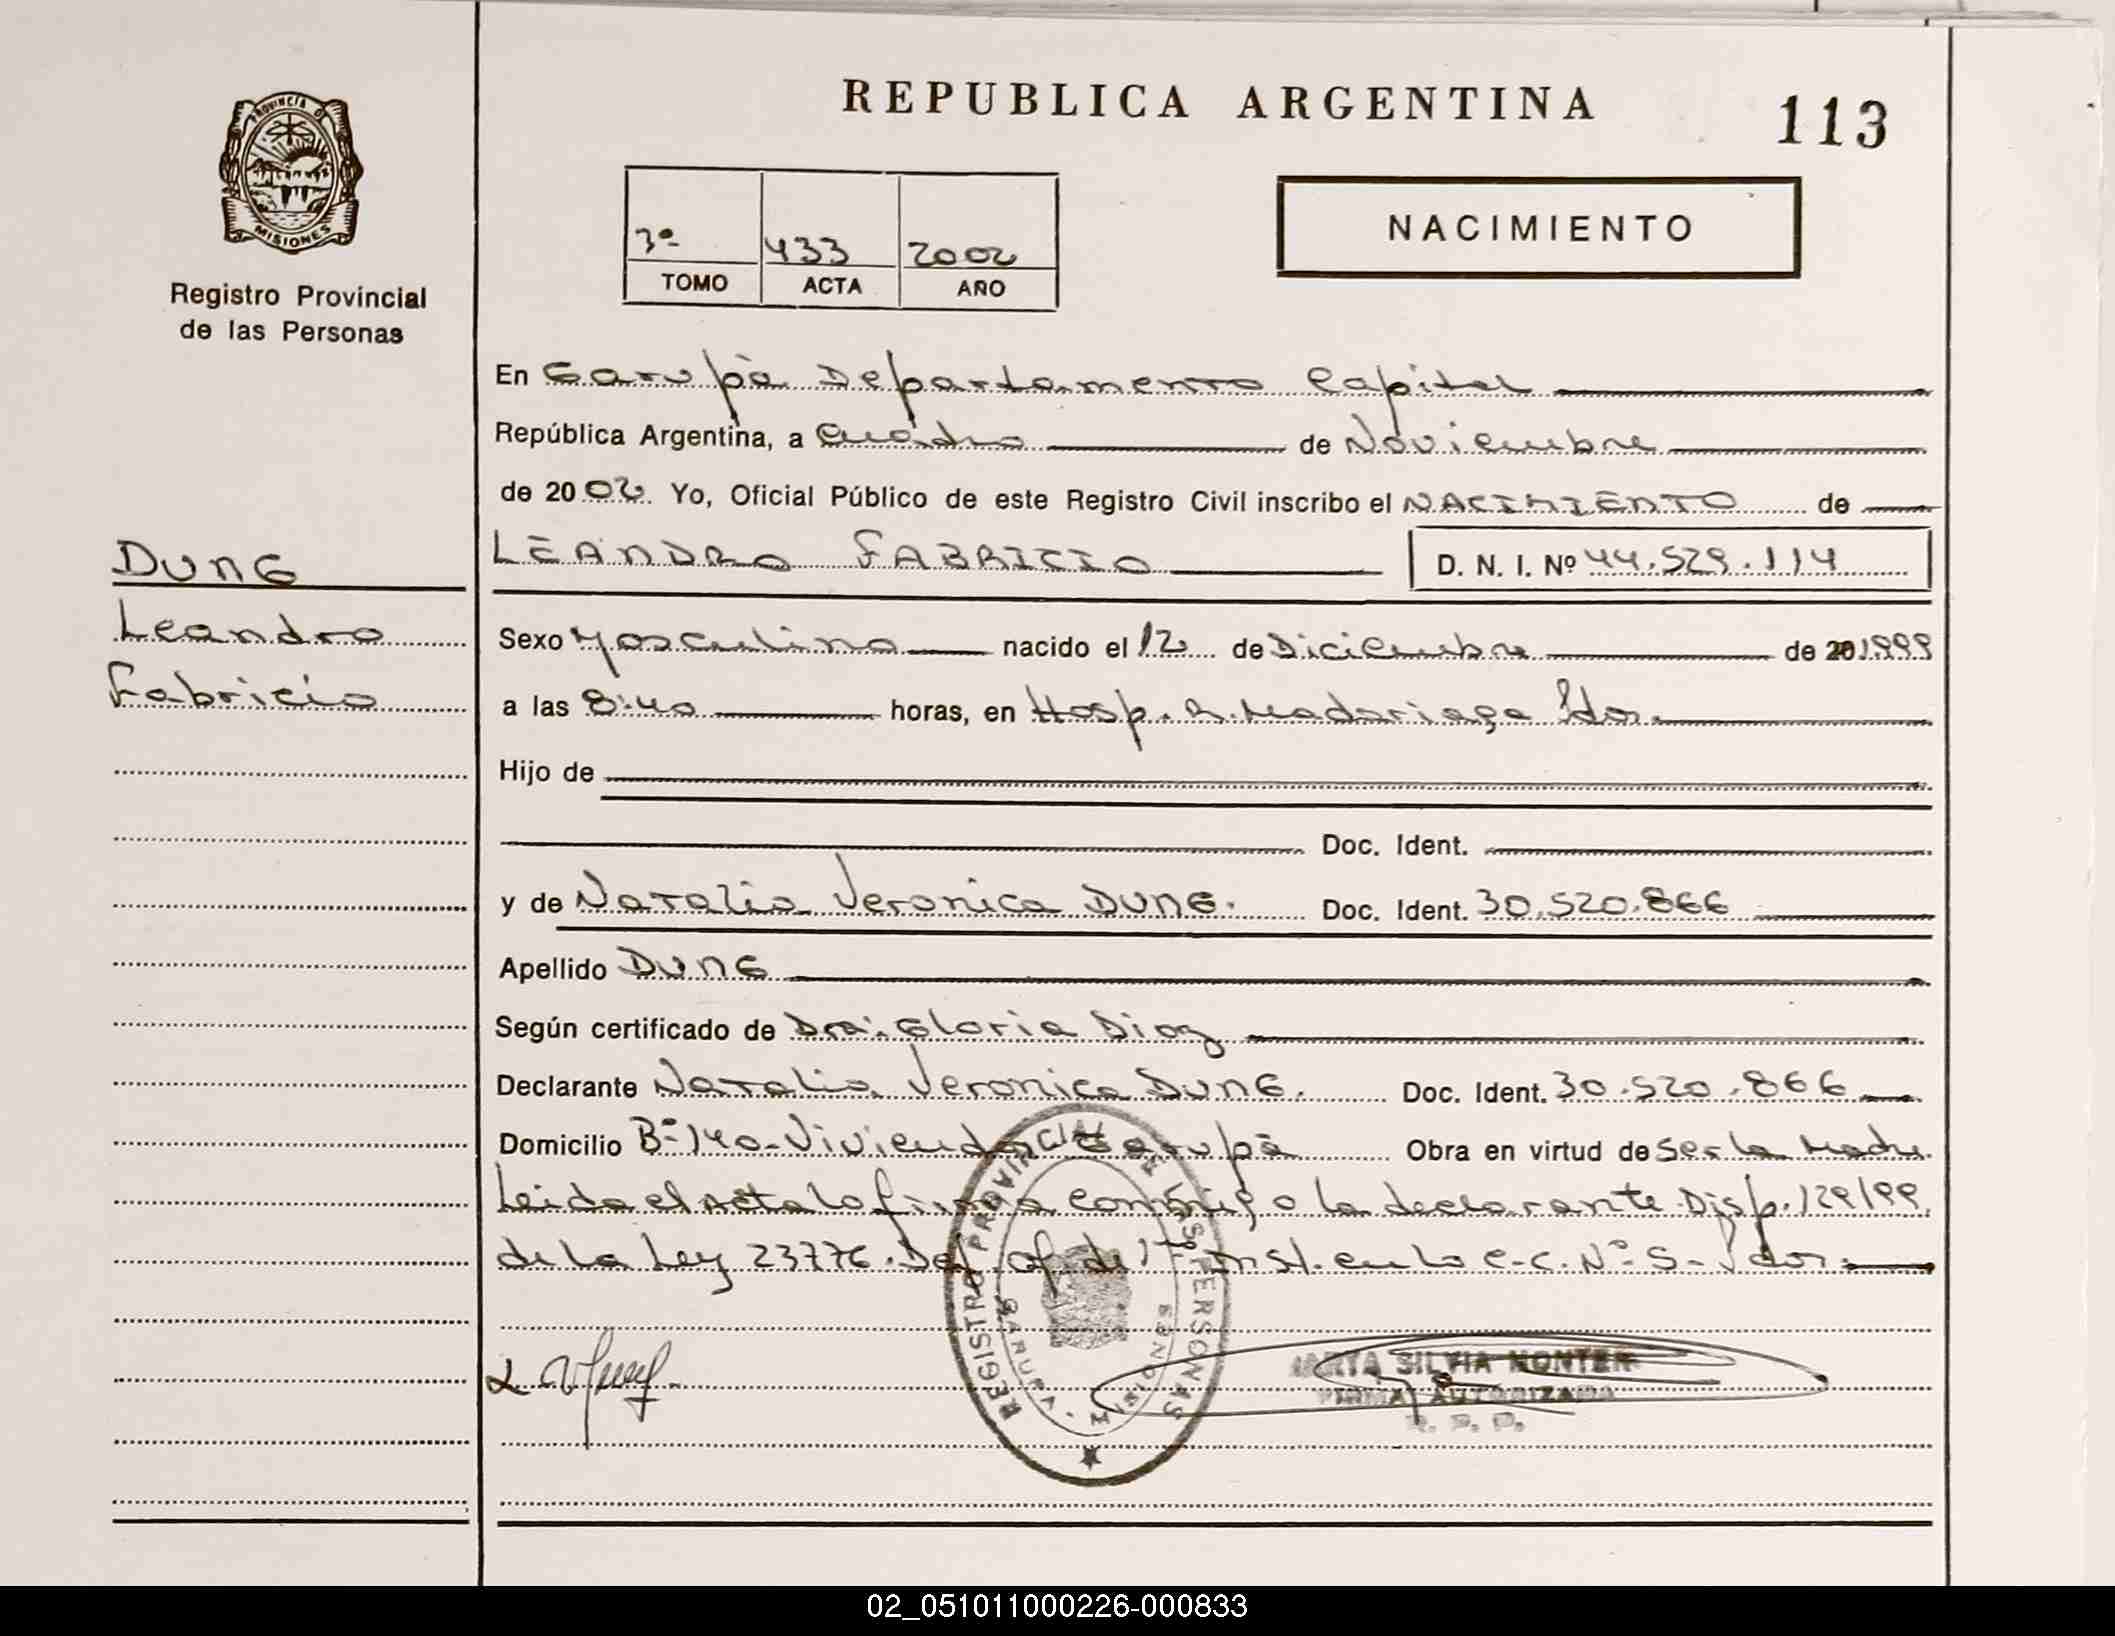 REPUBLICA ARGENTINA
113
PROVINCIA DE
MISIONES
Registro Provincial
de las Personas
3º 433 2002
TOMO ACTA AÑO
NACIMIENTO
En Garupà Departamento Capital
República Argentina, a Cuatro de Noviembre
de 2002. Yo, Oficial Público de este Registro Civil inscribo el NACIMIENTO de
LEANDRO FABRICIO D. N. I. Nº 44.529.114
DUNG
Leandro
Fabricio
Sexo Masculino nacido el 12 de Diciembre de 20 1999
a las 8:40 horas, en Hosp. R. Madariaga Pdas.
Hijo de
Doc. Ident.
y de Natalia Veronica DUNG. Doc. Ident. 30.520.866
Apellido DUNG
Según certificado de Dra. Gloria Diaz
Declarante Natalia Veronica DUNG. Doc. Ident. 30.520.866
Domicilio Bº 140-Viviendas Garupà Obra en virtud de ser la Madre.
Leida el Acta la firma conmigo la declarante Disp. 129/99
de la Ley 23776. Def. of. de 1º Inst. en lo C.C. Nº 5- Pdas.
REGISTRO PROVINCIAL DE LAS PERSONAS
GARUPA - MISIONES
MARTA SILVIA
FIRMA AUTORIZADA
02_051011000226-000833